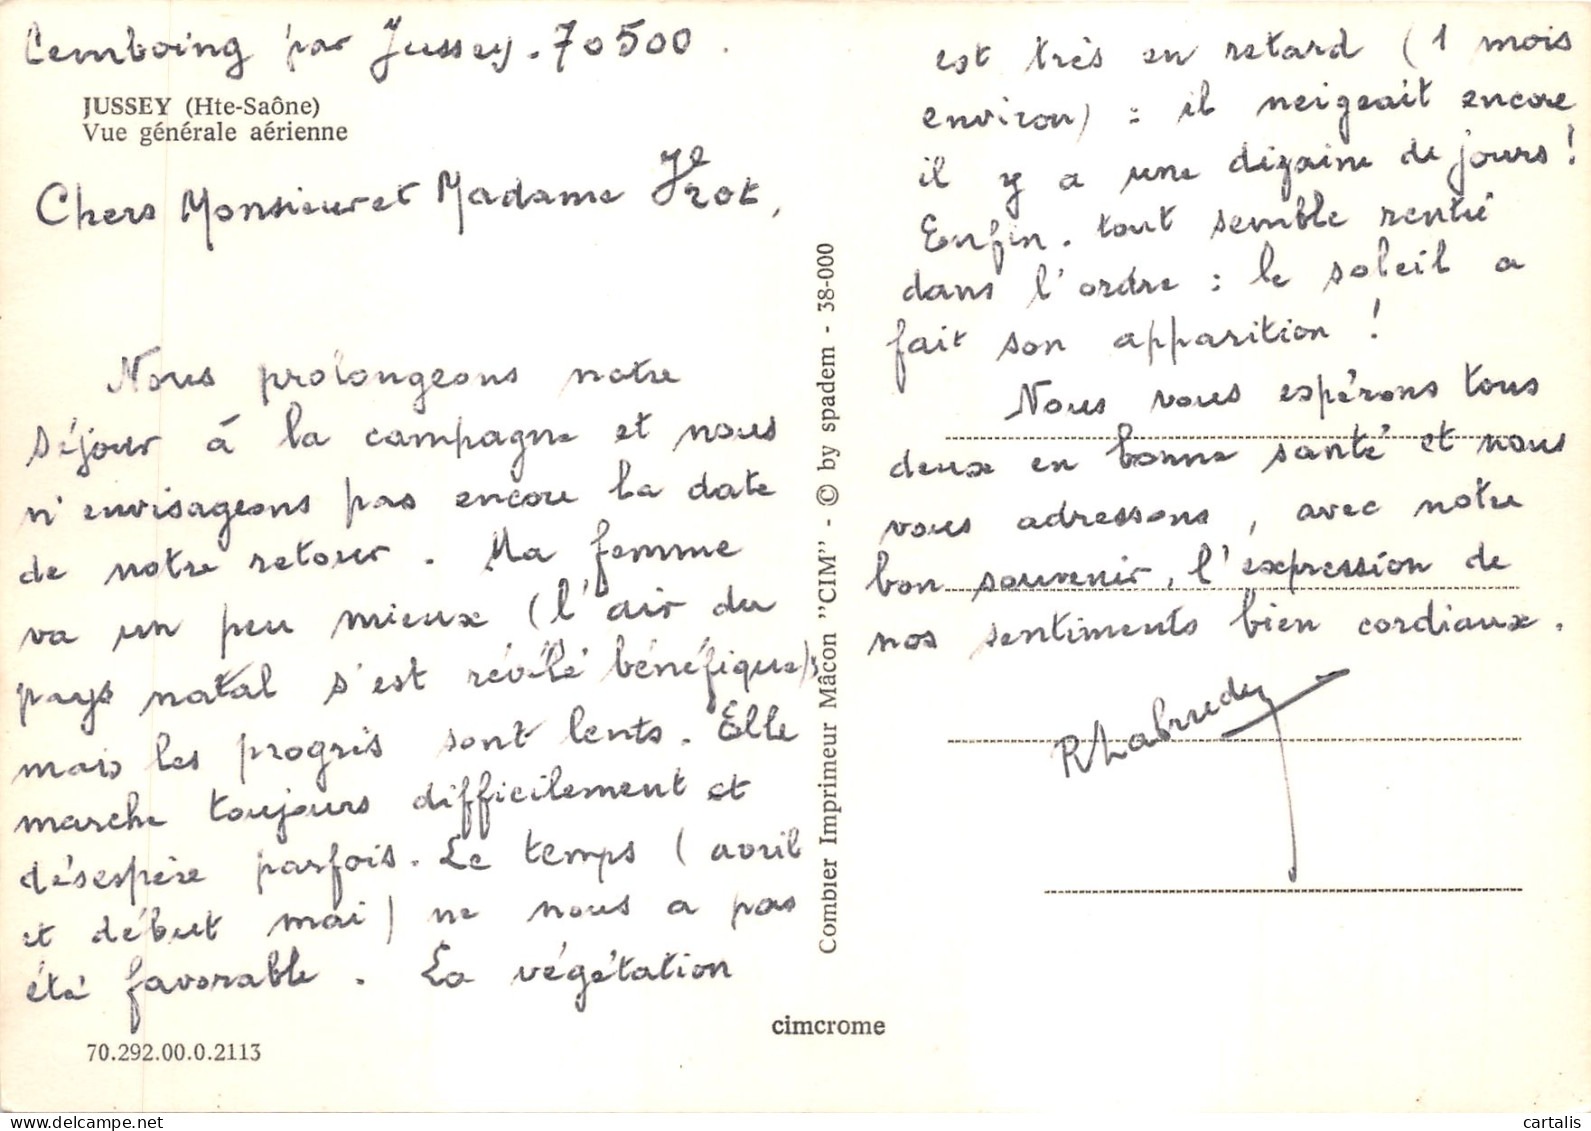 Cemboing par Jussey. 70500.
JUSSEY (Hte-Saône)
Vue générale aérienne
Chers Monsieur et Madame
Nous prolongeons notre
séjour à la campagne et nous
n'envisageons pas encore la date
de notre retour. Ma femme
va un peu mieux (l'air du
pays natal s'est révélé bénéfique)
mais les progrès sont lents. Elle
marche toujours difficilement et
désespère parfois. Le temps (avril
et début mai) ne nous a pas
été favorable. La végétation
70.292.00.0.2113
Combier Imprimeur Mâcon "CIM" - © by spadem - 38-000
cimcrome
est très en retard (1 mois
environ) : il neigeait encore
il y a une dizaine de jours !
Enfin. tout semble rentré
dans l'ordre : le soleil a
fait son apparition !
Nous vous espérons tous
deux en bonne santé et nous
vous adressons, avec notre
bon souvenir, l'expression de
nos sentiments bien cordiaux.
cartalis.com